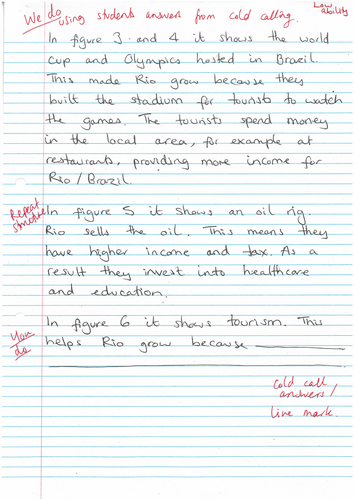 We do using students answers from cold calling.
Low ability
In figure 3 and 4 it shows the world
cup and Olympics hosted in Brazil
This made Rio grow because they
built the stadium for tourists to watch
the games. The tourists spend money
in the local area, for example at
restaurants, providing more income for
Rio/Brazil.
Repeat structure
In figure 5 it shows an oil rig.
Rio sells the oil. This means they
have higher income and tax. As a
result they invest into healthcare
and education.
In figure 6 it shows tourism. This
You do
helps Rio grow because
cold call
answers/
live mark.